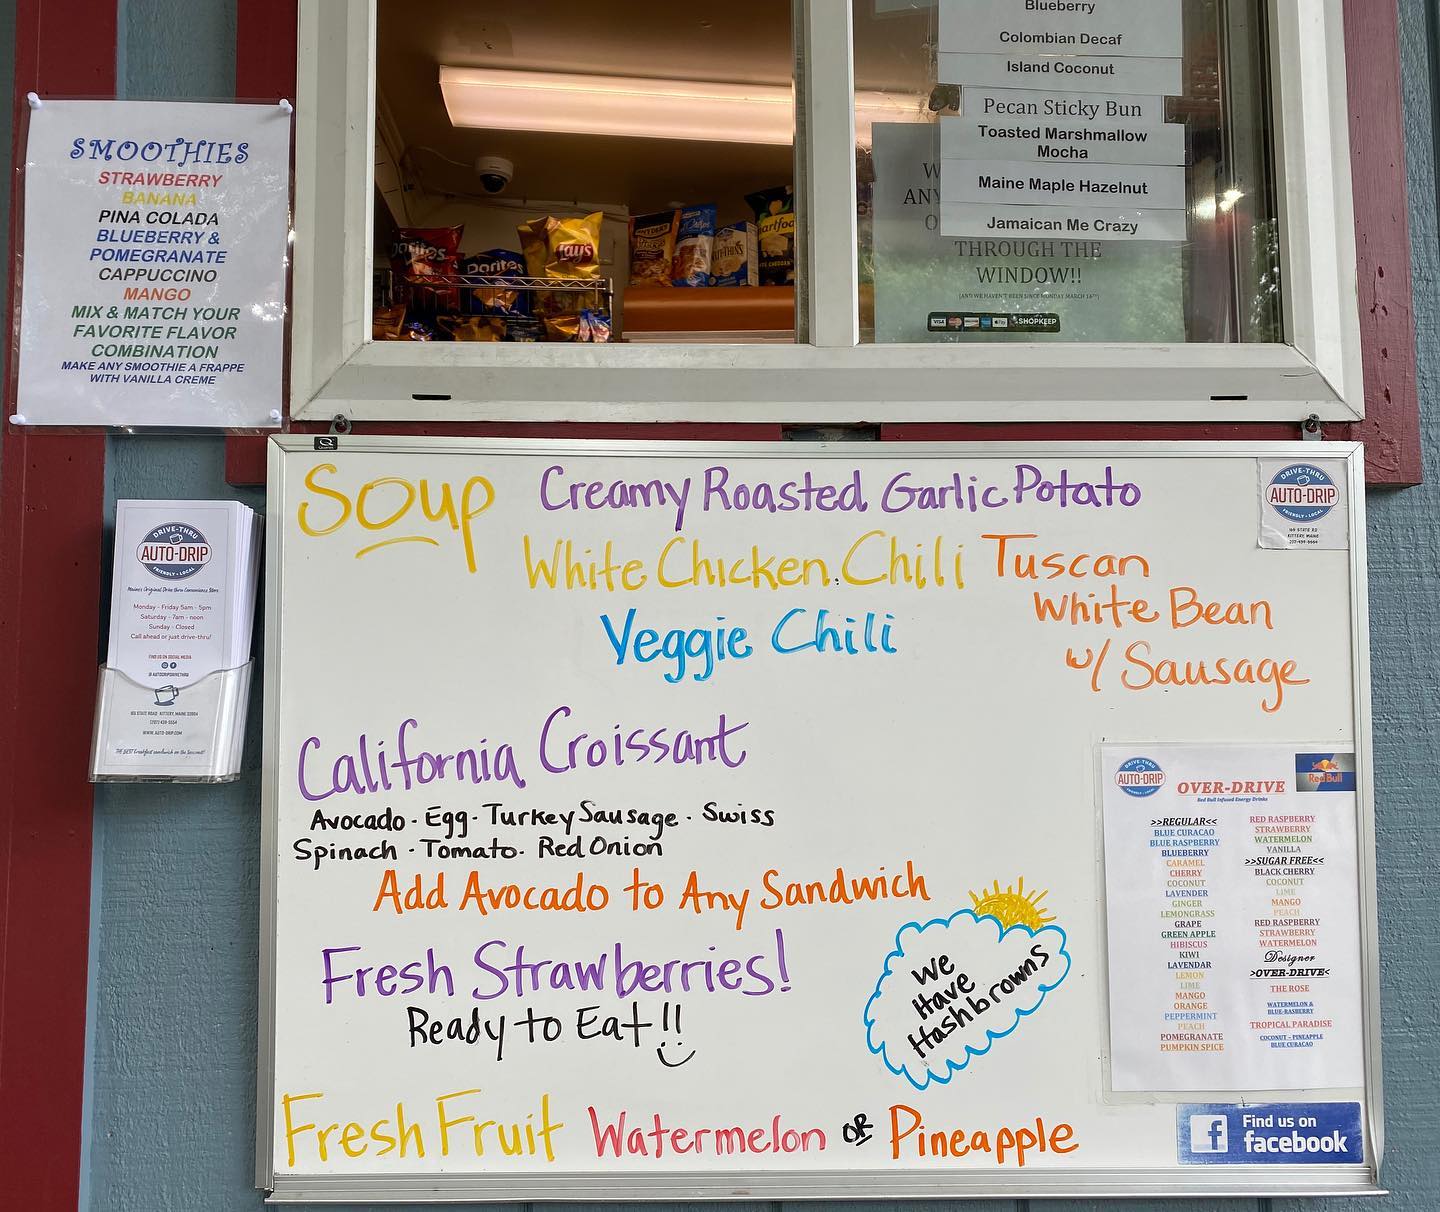 Blueberry
Colombian Decaf
Island Coconut
Pecan Sticky Bun
Toasted Marshmallow
Mocha
Maine Maple Hazelnut
Jamaican Me Crazy
THROUGH THE
WINDOW!!
(AND WE HAVEN'T BEEN SINCE MONDAY MARCH 16TH)
VISA
Pay
SHOPKEEP
Doritos
Doritos
Lay's
SMOOTHIES
STRAWBERRY
BANANA
PINA COLADA
BLUEBERRY &
POMEGRANATE
CAPPUCCINO
MANGO
MIX & MATCH YOUR
FAVORITE FLAVOR
COMBINATION
MAKE ANY SMOOTHIE A FRAPPE
WITH VANILLA CREME
DRIVE-THRU
AUTO-DRIP
FRIENDLY • LOCAL
Maine's Original Drive thru Convenience Store
Monday - Friday 5am - 5pm
Saturday - 7am - noon
Sunday - Closed
Call ahead or just drive-thru!
FIND US ON SOCIAL MEDIA
@ AUTODRIPDRIVETHRU
WWW.AUTO-DRIP.COM
THE BEST breakfast sandwich on the Seacoast!
Soup Creamy Roasted Garlic Potato
White Chicken Chili Tuscan
White Bean
w/ Sausage
Veggie Chili
DRIVE-THRU
AUTO-DRIP
FRIENDLY • LOCAL
KITTERY, MAINE
California Croissant
Avocado - Egg - Turkey Sausage - Swiss
Spinach - Tomato - Red Onion
Add Avocado to Any Sandwich
Fresh Strawberries!
Ready to Eat!!
We
Have
Hashbrowns
Fresh Fruit Watermelon or Pineapple
DRIVE-THRU
AUTO-DRIP
FRIENDLY • LOCAL
OVER-DRIVE
Red Bull Infused Energy Drinks
Red Bull
>>REGULAR<<
BLUE CURACAO
BLUE RASPBERRY
BLUEBERRY
CARAMEL
CHERRY
COCONUT
LAVENDER
GINGER
LEMONGRASS
GRAPE
GREEN APPLE
HIBISCUS
KIWI
LAVENDAR
LEMON
LIME
MANGO
ORANGE
PEPPERMINT
PEACH
POMEGRANATE
PUMPKIN SPICE
RED RASPBERRY
STRAWBERRY
WATERMELON
VANILLA
>>SUGAR FREE<<
BLACK CHERRY
COCONUT
LIME
MANGO
PEACH
RED RASPBERRY
STRAWBERRY
WATERMELON
Designer
>OVER-DRIVE<
THE ROSE
WATERMELON &
BLUE-RASBERRY
TROPICAL PARADISE
COCONUT – PINEAPPLE
BLUE CURACAO
f
Find us on
facebook